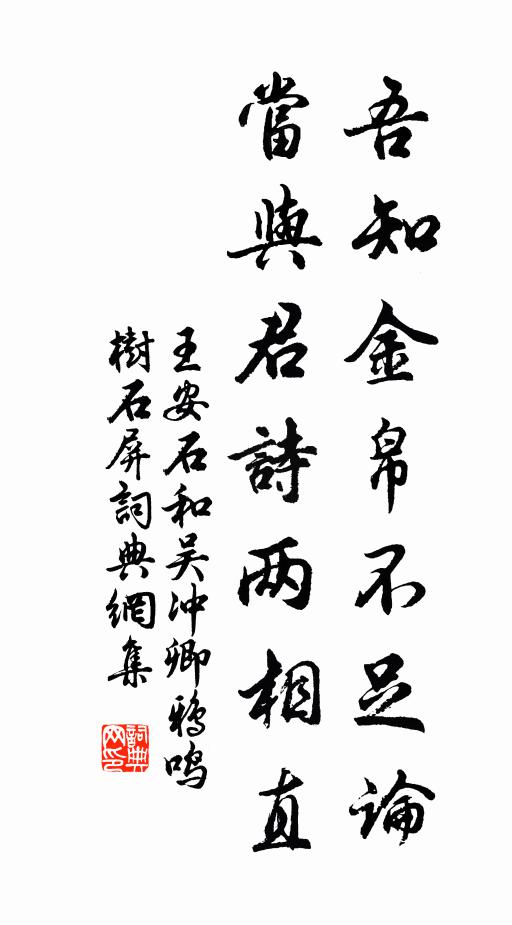 吾知金帛不足論
當與君詩两相直
王安石和吴冲卿鴉鸣
樹石屏詞典網集
詞典网印